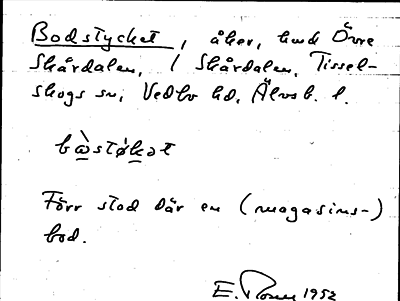 Bodstycket, åker, hmd Övre
Skårdalen, / Skårdalen, Tissel-
skogs sn, Vedbo hd, Älvsb. l.
bὼstø̀kət
Förr stod där en (magasins-)
bod.
E. 1952